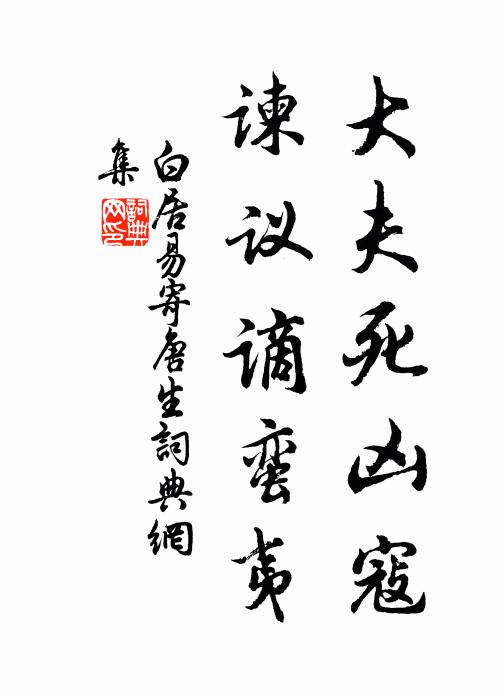 大夫死凶寇
谏议谪蛮夷
白居易寄唐生詞典網
集
詞典网印